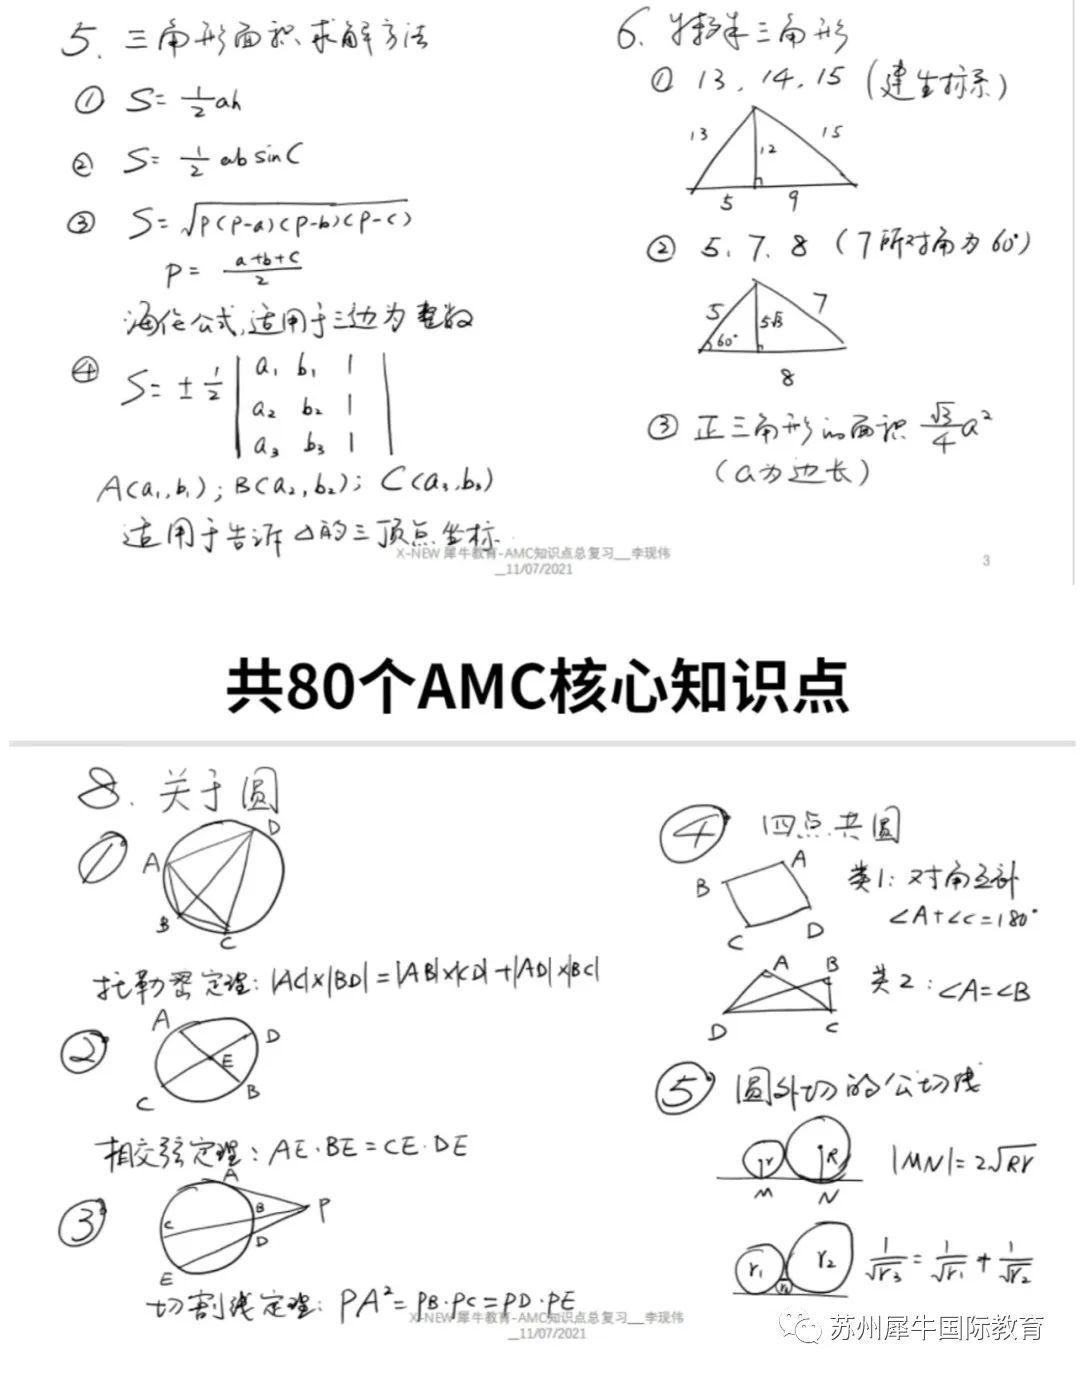 5. 三角形面积求解方法
① S=½ah
② S=½absinC
③ S=√P(P-a)(P-b)(P-c)
P=(a+b+c)/2
海伦公式,适用于三边为整数
④ S=±½
a₁ b₁ 1
a₂ b₂ 1
a₃ b₃ 1
A(a₁,b₁); B(a₂,b₂); C(a₃,b₃)
适用于告诉△的三顶点坐标.
6. 特殊三角形
① 13, 14, 15 (建坐标系)
13 15
12
5 9
② 5、7、8 (7所对角为60°)
5 7
5√3
60°
8
③ 正三角形的面积 √3/4 a²
(a为边长)
X-NEW 犀牛教育-AMC知识点总复习__李现伟
__11/07/2021
3
共80个AMC核心知识点
8. 关于圆
①
D
A
B
C
托勒密定理: |AC|×|BD|=|AB|×|CD|+|AD|×|BC|
②
A
D
E
B
C
相交弦定理: AE·BE=CE·DE
③
A
B
P
C
D
E
切割线定理: PA²=PB·PC=PD·PE
④ 四点共圆
A
B
C D
类1: 对角互补
∠A+∠C=180°
A B
D C
类2: ∠A=∠B
⑤ 圆外切的公切线
r R
M N
|MN|=2√Rr
r₁ r₂
1/√r₃=1/√r₁+1/√r₂
X-NEW 犀牛教育-AMC知识点总复习__李现伟
__11/07/2021
苏州犀牛国际教育